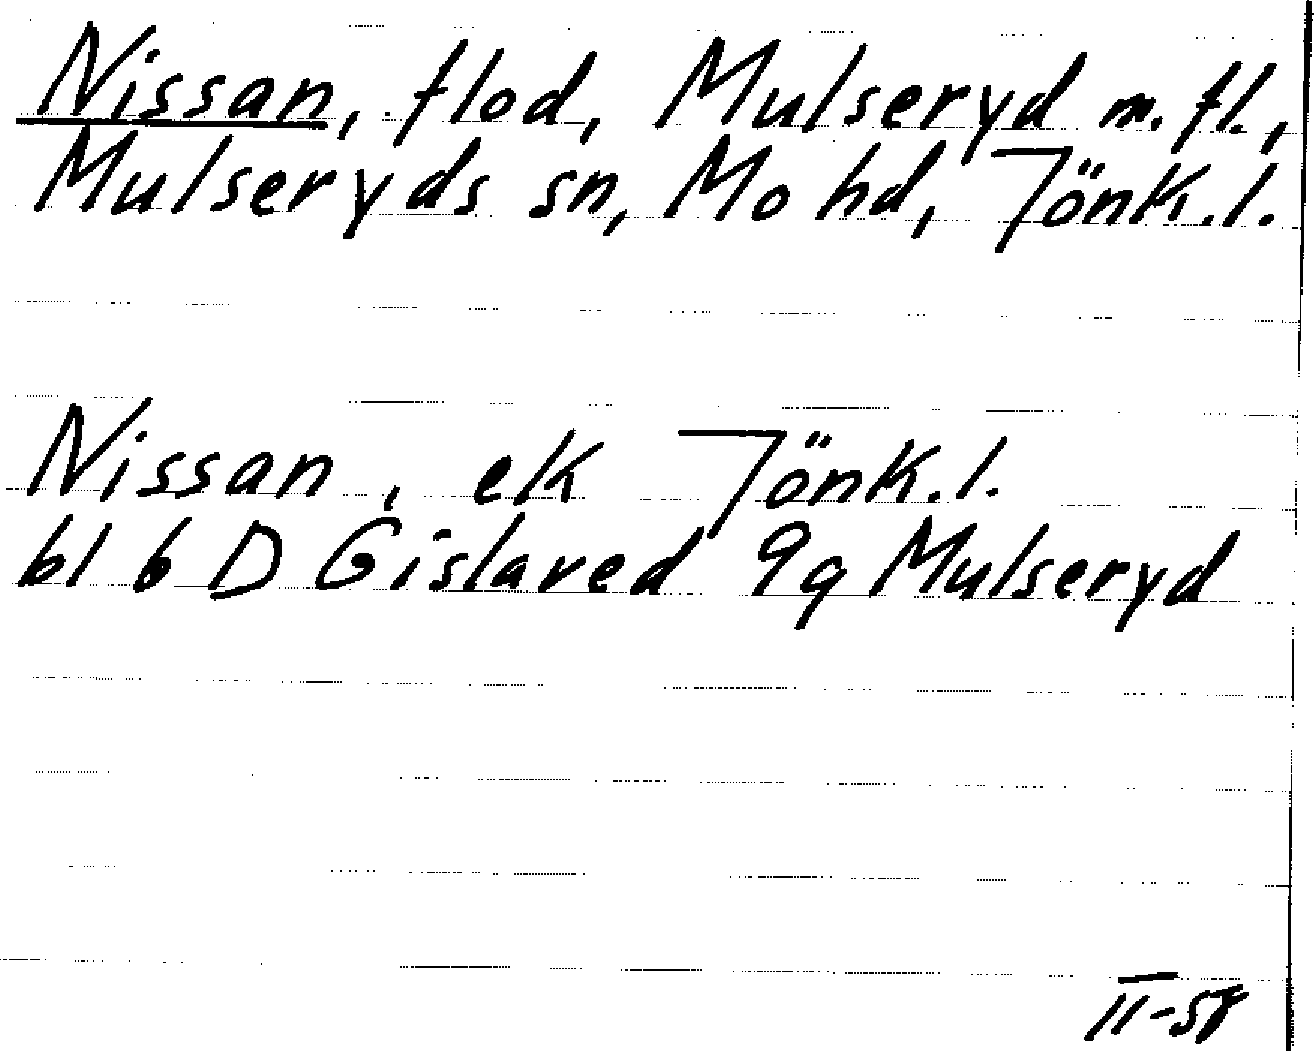 Nissan, flod, Mulseryd m. fl.,
Mulseryds sn, Mo hd, Jönk. l.
Nissan, ek Jönk. l.
bl 6 D Gislaved 9g Mulseryd
II-58